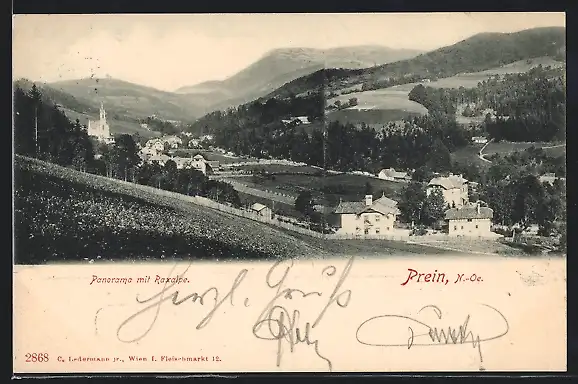 Panorama mit Raxalpe.
Prein, N.-Oe.
Herzl. Gruss
2868 C. Ledermann jr., Wien I. Fleischmarkt 12.